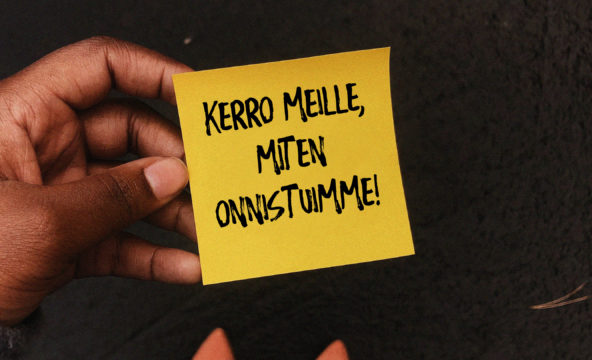 KERRO MEILLE,
MITEN
ONNISTUIMME!